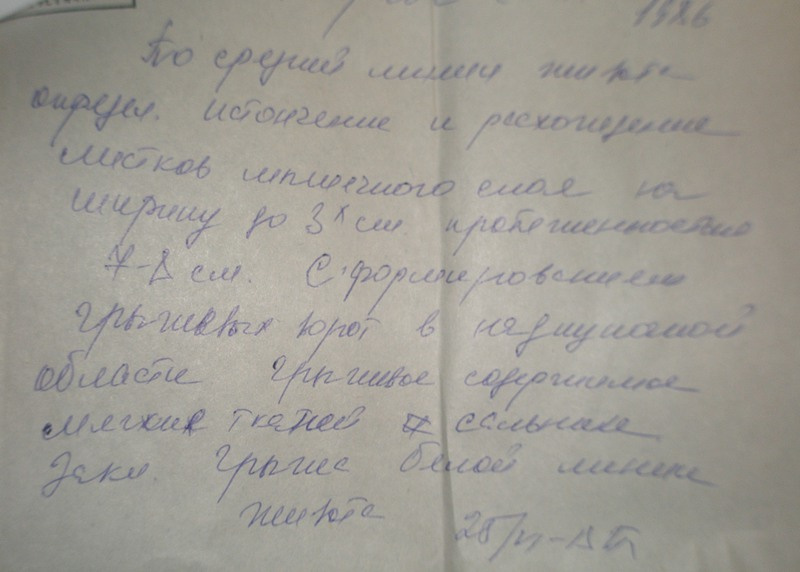 1986
По средней линии живота
опредл. истончение и расхождение
листков мышечного слоя на
ширину до 3х см протяженностью
7-8 см. С формированием
грыжевых ворот в надпупочной
области грыжевое содержимое
мягких тканей сальника
Закл. Грыжа белой линии
живота